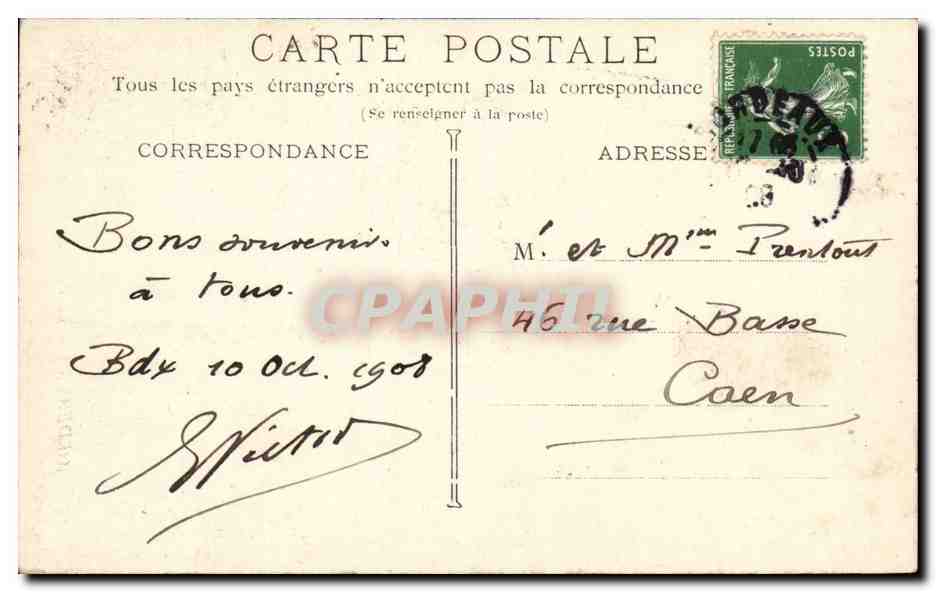 CARTE POSTALE
Tous les pays étrangers n'acceptent pas la correspondance
(Se renseigner à la poste)
CORRESPONDANCE
ADRESSE
REPUBLIQUE FRANÇAISE
POSTES
BORDEAUX
Bons souvenirs
à tous.
Bdx 10 Oct. 1908
Victor
M. et Mme Prentout
46 rue Basse
Caen
CPAPHIL